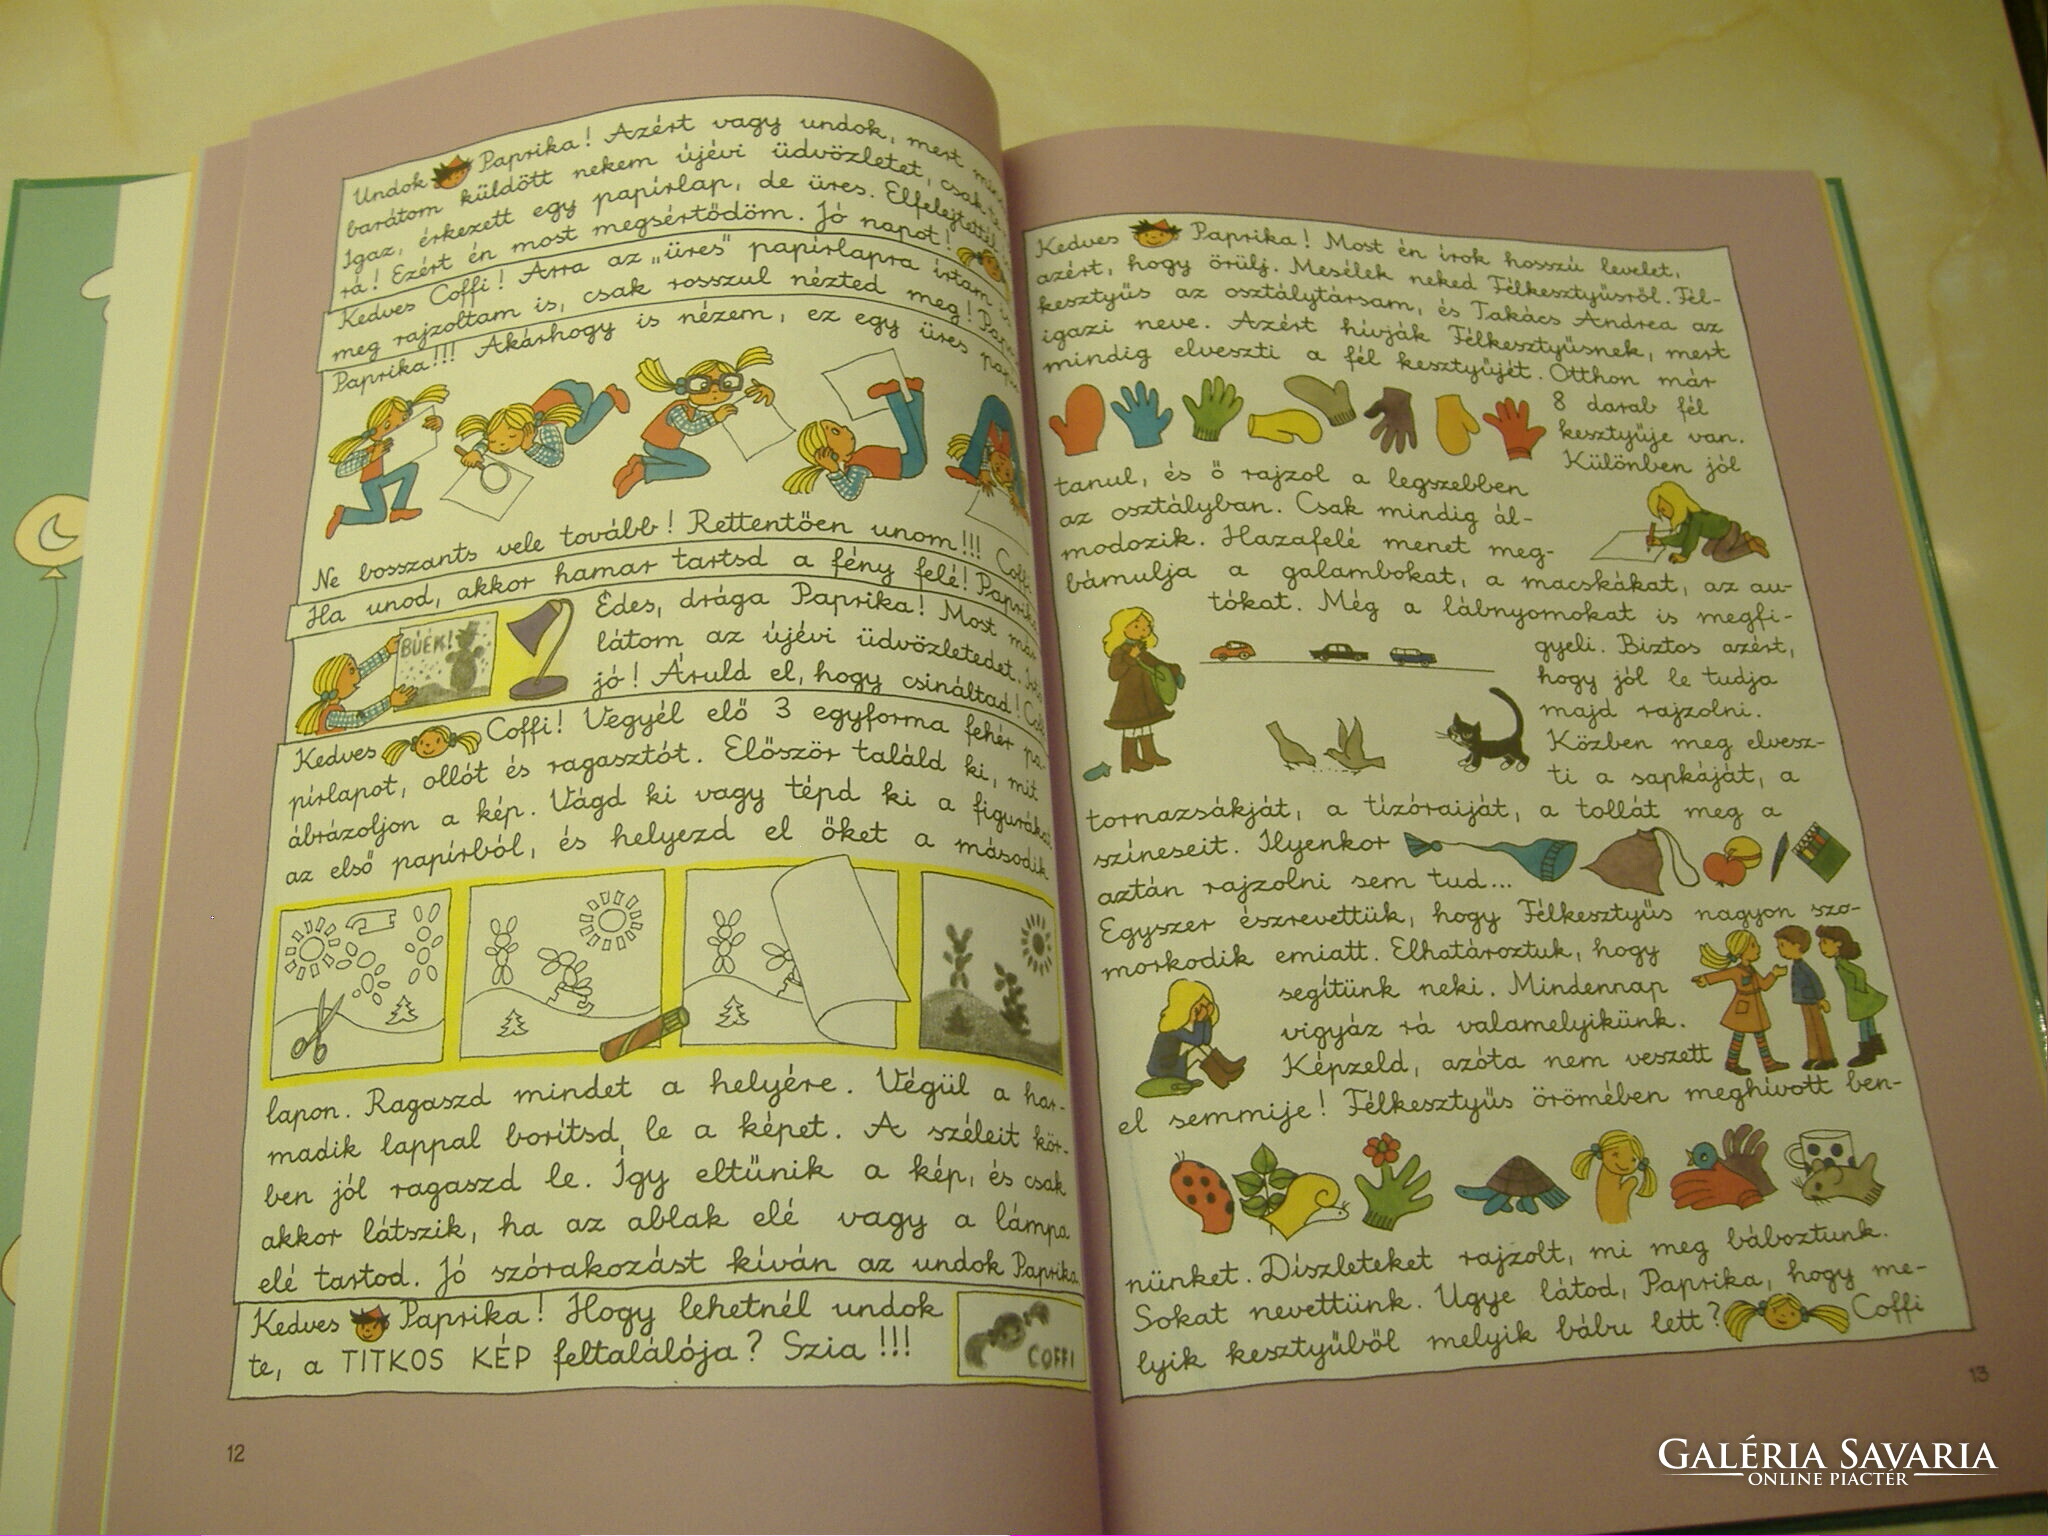 Undok Paprika! Azért vagy undok, mert
barátom küldött nekem újévi üdvözletet, csak te
Igaz, érkezett egy papírlap, de üres. Elfelejtettél
rá! Ezért én most megsértődöm. Jó napot!
Kedves Coffi! Arra az „üres" papírlapra írtam is
meg rajzoltam is, csak rosszul nézted meg!
Paprika!!! Akárhogy is nézem, ez egy üres
Ne bosszants vele tovább! Rettentően unom!!! Coffi
Ha unod, akkor hamar tartsd a fény felé! Paprika
BÚÉK!
Édes, drága Paprika! Most már
látom az újévi üdvözletedet.
jó! Áruld el, hogy csináltad!
Kedves Coffi! Végyél elő 3 egyforma fehér pa-
pírlapot, ollót és ragasztót. Először találd ki, mit
ábrázoljon a kép. Vágd ki vagy tépd ki a figurákat
az első papírból, és helyezd el őket a második
lapon. Ragaszd mindet a helyére. Végül a har-
madik lappal borítsd le a képet. A széleit kör-
ben jól ragaszd le. Így eltűnik a kép, és csak
akkor látszik, ha az ablak elé vagy a lámpa
elé tartod. Jó szórakozást kíván az undok Paprika
Kedves Paprika! Hogy lehetnél undok
te, a TITKOS KÉP feltalálója? Szia!!!
COFFI
12
Kedves Paprika! Most én írok hosszú levelet,
azért, hogy örülj. Mesélek neked Félkesztyűsről. Fél-
kesztyűs az osztálytársam, és Takács Andrea az
igazi neve. Azért hívják Félkesztyűsnek, mert
mindig elveszti a fél kesztyűjét. Otthon már
8 darab fél
kesztyűje van.
Különben jól
tanul, és ő rajzol a legszebben
az osztályban. Csak mindig ál-
modozik. Hazafelé menet meg-
bámulja a galambokat, a macskákat, az au-
tókat. Még a lábnyomokat is megfi-
gyeli. Biztos azért,
hogy jól le tudja
majd rajzolni.
Közben meg elvesz-
ti a sapkáját, a
tornazsákját, a tízóraiját, a tollát meg a
színeseit. Ilyenkor
aztán rajzolni sem tud...
Egyszer észrevettük, hogy Félkesztyűs nagyon szo-
morkodik emiatt. Elhatároztuk, hogy
segítünk neki. Mindennap
vigyáz rá valamelyikünk.
Képzeld, azóta nem veszett
el semmije! Félkesztyűs örömében meghívott ben-
nünket. Díszleteket rajzolt, mi meg báboztunk.
Sokat nevettünk. Ugye látod, Paprika, hogy me-
lyik kesztyűből melyik bábu lett? Coffi
13
GALÉRIA SAVARIA
ONLINE PIACTÉR